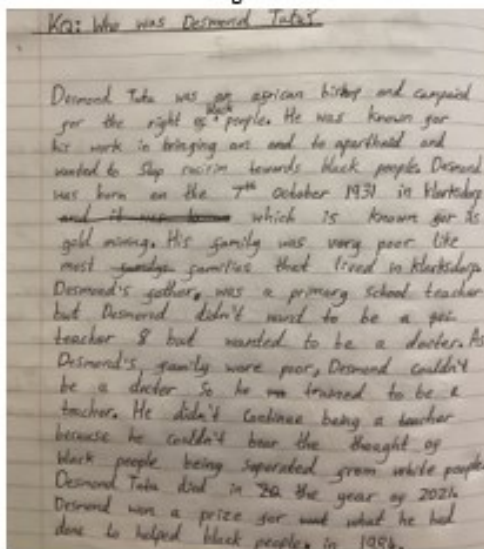 KQ: Who was Desmond Tutu?
Desmond Tutu was an african bishop and campaind
for the right of black people. He was known for
his work in bringing an end to apartheid and
wanted to stop racisim towards black people. Desmond
was born on the 7th october 1931 in klerksdorp
which is known for its
gold mining. His family was very poor like
most families that lived in klerksdorp.
Desmond's father, was a primary school teacher
but Desmond didn't want to be a
teacher & but wanted to be a docter. As
Desmond's family were poor, Desmond couldn't
be a docter so he trained to be a
teacher. He didn't continue being a teacher
because he couldn't bear the thought of
black people being seperated from white people
Desmond Tutu died in the year of 2021.
Desmond won a prize for what he had
done to helped black people, in 1984.